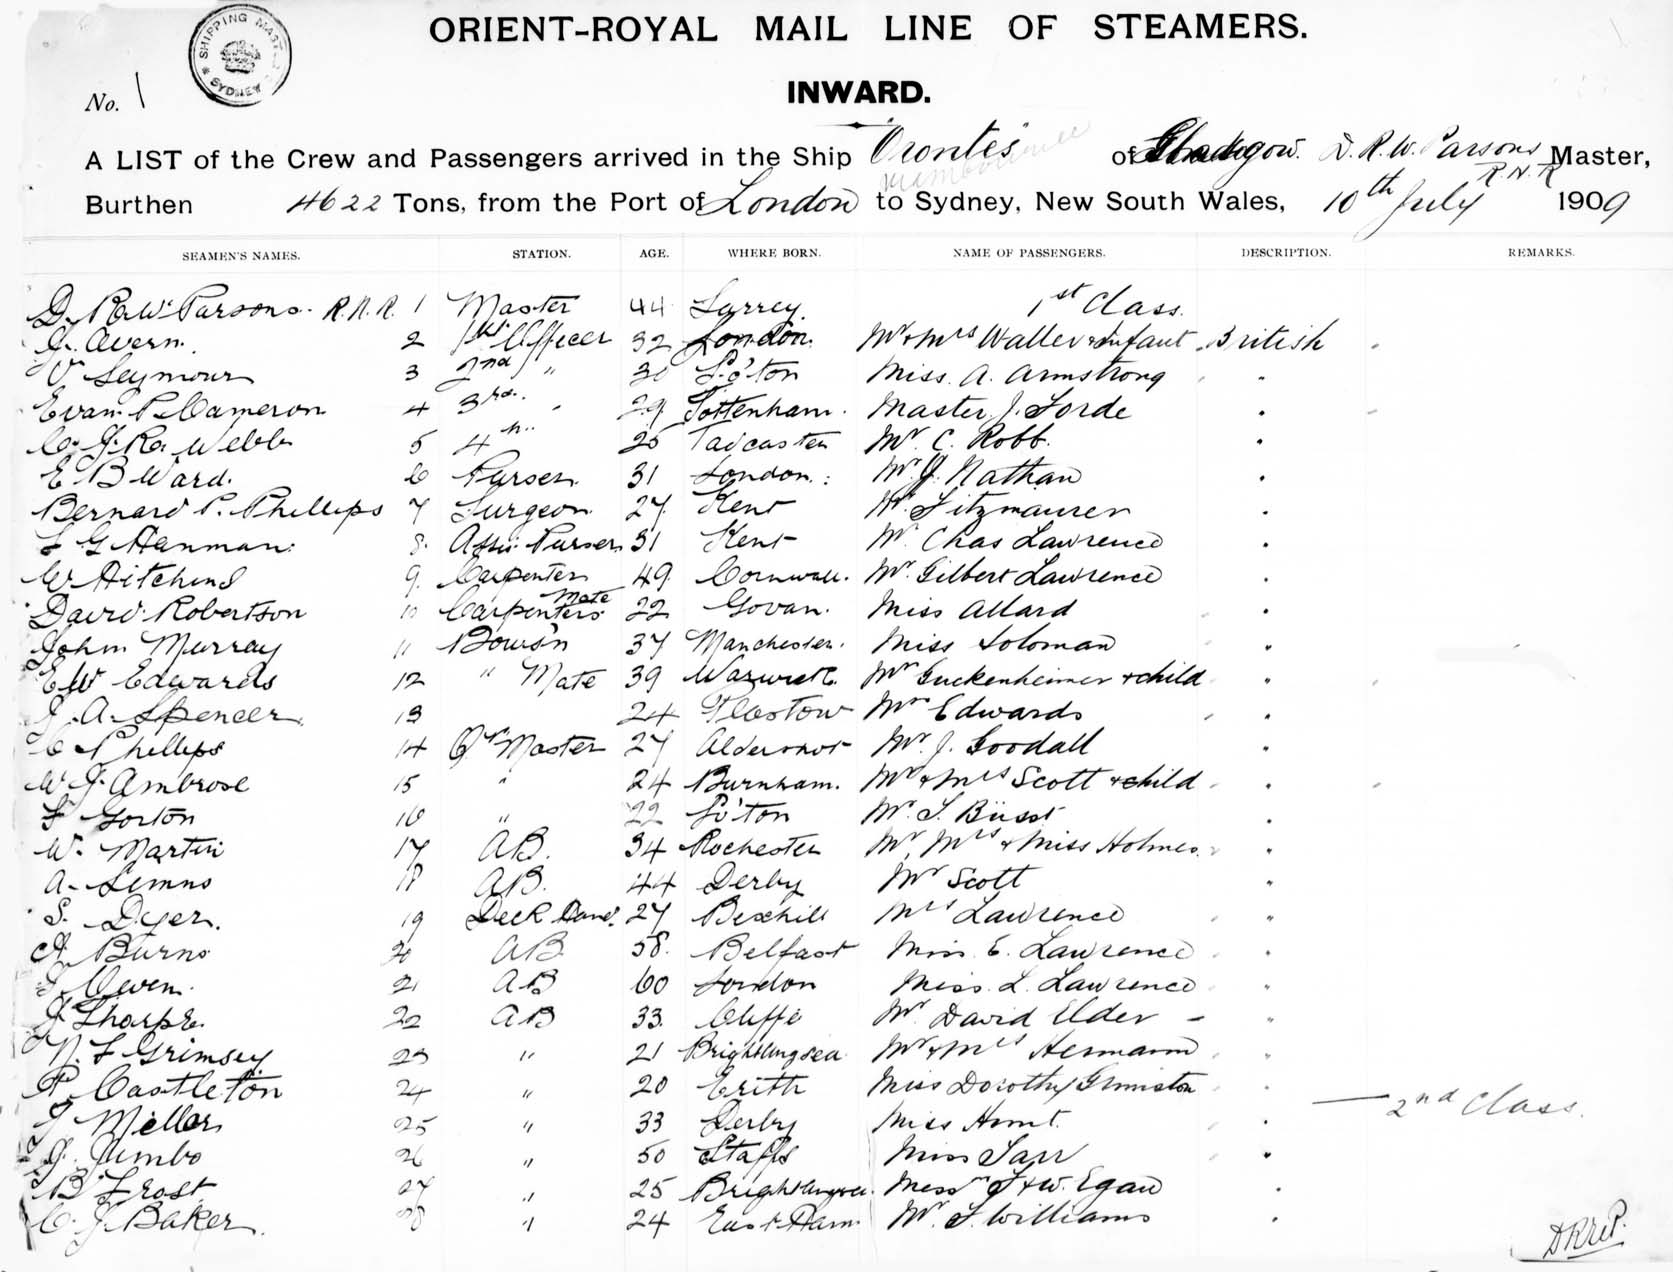 SHIPPING MASTER SYDNEY
ORIENT-ROYAL MAIL LINE OF STEAMERS.
No. 1
INWARD.
A LIST of the Crew and Passengers arrived in the Ship "Orontes" of Glasgow. D. R. W. Parsons R.N.R Master,
Burthen 4622 Tons, from the Port of London to Sydney, New South Wales, 10th July 1909
SEAMEN'S NAMES. STATION. AGE. WHERE BORN. NAME OF PASSENGERS. DESCRIPTION. REMARKS.
D. R. W. Parsons. R.N.R. 1 Master 44 Surrey. 1st Class.
J. Avern. 2 1st Officer 32 London. Mr & Mrs Waller & Infant British
V Seymour 3 2nd " 30 So'ton Miss. A. Armstrong "
Evan. P. Cameron 4 3rd. " 29 Tottenham. Master. J. Forde "
C. J. R. Webb 5 4th. 25 Tadcaster Mr. C. Robb. "
E B Ward. 6 Purser. 31 London. Mr. J. Nathan "
Bernard P. Phillips 7 Surgeon. 27 Kent Mr. Fitzmaurice "
S G Hanman. 8. Asst. Purser 31 Kent Mr. Chas Lawrence "
W Hitchens 9. Carpenter 49 Cornwall. Mr. Gilbert Lawrence "
David. Robertson 10 Carpenters. Mate 22 Govan. Miss Allard "
John Murray 11 Bows'n 37 Manchester. Miss Soloman "
E W Edwards 12 " Mate 39 Warwick. Mr Guckenheimer & child "
J. A. Spencer. 13 24 Plastow Mr Edwards "
C Phillips 14 Qr Master 27 Aldershot Mr. J. Goodall "
W. J. Ambrose 15 " 24 Burnham. Mr & Mrs Scott & child "
F Gorton 16 " 22 So'ton Mr. S. Büsst "
W. Martin 17 A.B. 34 Rochester Mr, Mrs & Miss Holmes. "
A. Simms 18 A.B. 44 Derby Mr Scott "
S. Dyer. 19 Deck Hand. 27 Bexhill Mrs Lawrence "
Burns 20 AB. 58. Belfast Miss. E. Lawrence "
Owen. 21 AB 60 London Miss. L. Lawrence "
J. Tharpe. 22 AB 33. Cliffe Mr. David Elder "
N. F Grimsey 23 " 21 Brightlingsea Mr & Mrs Hermann "
P. Castleton 24 " 20 Erith Miss Dorothy Ormiston "
J Miller 25 " 33 Derby Miss Hunt. " 2nd Class.
J. Jumbo 26 " 50 Staffs Miss Tarr "
B. Frost 27 " 25 Brightlingsea. Messrs F & W. Egan "
C. J. Baker. 28 " 24 East Ham Mr. F. Williams "